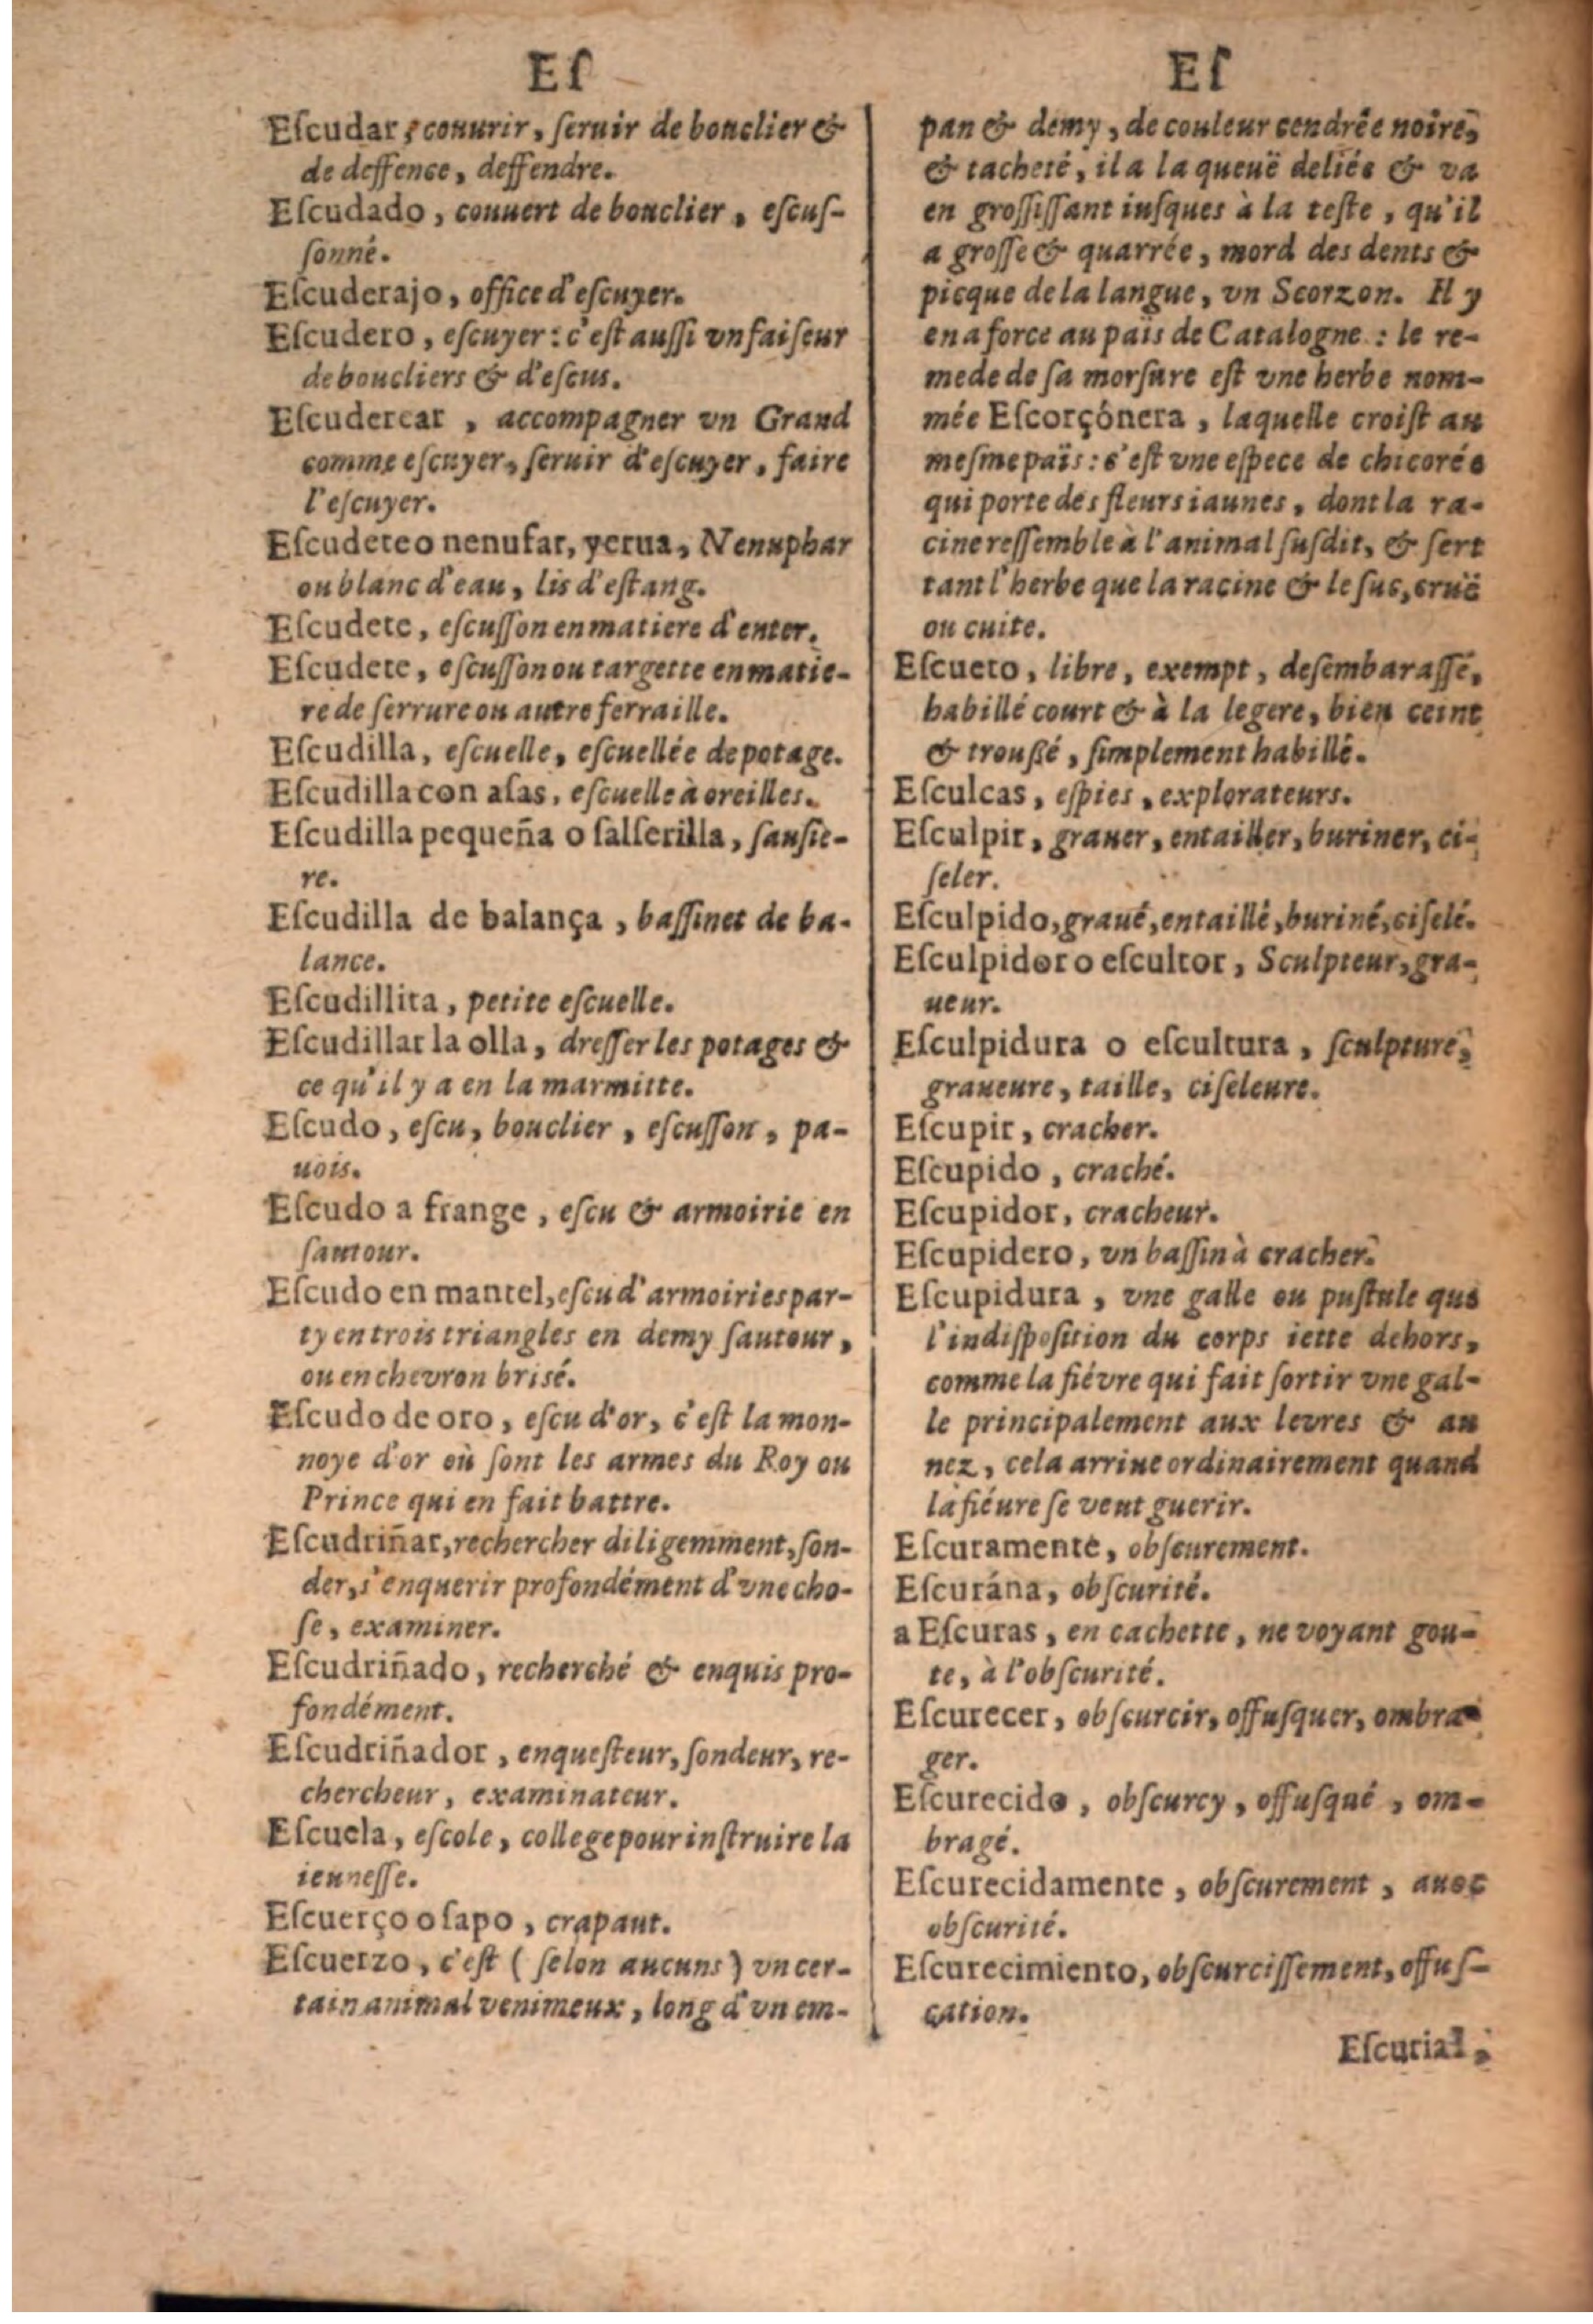 Eſ
Eſcudar, couurir, ſeruir de bouclier &
de deffence, deffendre.
Eſcudado, couuert de bouclier, eſcuſ-
ſonné.
Eſcuderajo, office d'eſcuyer.
Eſcudero, eſcuyer: c'eſt auſſi vn faiſeur
de boucliers & d'eſcus.
Eſcuderear, accompagner vn Grand
comme eſcuyer, ſeruir d'eſcuyer, faire
l'eſcuyer.
Eſcudete o nenufar, yerua, Nenuphar
ou blanc d'eau, lis d'eſtang.
Eſcudete, eſcuſſon en matiere d'enter.
Eſcudete, eſcuſſon ou targette en matie-
re de ſerrure ou autre ferraille.
Eſcudilla, eſcuelle, eſcuellée de potage.
Eſcudilla con aſas, eſcuelle à oreilles.
Eſcudilla pequeña o ſalſerilla, ſauſie-
re.
Eſcudilla de balança, baſſinet de ba-
lance.
Eſcudillita, petite eſcuelle.
Eſcudillar la olla, dreſſer les potages &
ce qu'il y a en la marmitte.
Eſcudo, eſcu, bouclier, eſcuſſon, pa-
uois.
Eſcudo a frange, eſcu & armoirie en
ſautour.
Eſcudo en mantel, eſcu d'armoiries par-
ty en trois triangles en demy ſautour,
ou en chevron brisé.
Eſcudo de oro, eſcu d'or, c'eſt la mon-
noye d'or où ſont les armes du Roy ou
Prince qui en fait battre.
Eſcudriñar, rechercher diligemment, ſon-
der, s'enquerir profondément d'vne cho-
ſe, examiner.
Eſcudriñado, recherché & enquis pro-
fondément.
Eſcudriñador, enqueſteur, ſondeur, re-
chercheur, examinateur.
Eſcuela, eſcole, college pour inſtruire la
ieuneſſe.
Eſcuerço o ſapo, crapaut.
Eſcuerzo, c'eſt (ſelon aucuns) vn cer-
tain animal venimeux, long d'vn em-
Eſ
pan & demy, de couleur cendrée noire,
& tacheté, il a la queuë deliée & va
en groſſiſſant iuſques à la teſte, qu'il
a groſſe & quarrée, mord des dents &
picque de la langue, vn Scorzon. Il y
en a force au païs de Catalogne: le re-
mede de ſa morſure eſt vne herbe nom-
mée Eſcorçónera, laquelle croiſt au
meſme païs: c'eſt vne eſpece de chicorée
qui porte des fleurs iaunes, dont la ra-
cine reſſemble à l'animal ſuſdit, & ſert
tant l'herbe que la racine & le ſuc, cruë
ou cuite.
Eſcueto, libre, exempt, deſembaraſſé,
habillé court & à la legere, bien ceint
& trouſſé, ſimplement habillé.
Eſculcas, eſpies, explorateurs.
Eſculpir, grauer, entailler, buriner, ci-
ſeler.
Eſculpido, graué, entaillé, buriné, ciſelé.
Eſculpidor o eſcultor, Sculpteur, gra-
ueur.
Eſculpidura o eſcultura, ſculpture,
graueure, taille, ciſeleure.
Eſcupir, cracher.
Eſcupido, craché.
Eſcupidor, cracheur.
Eſcupidero, vn baſſin à cracher.
Eſcupidura, vne galle ou puſtule que
l'indiſpoſition du corps iette dehors,
comme la fiévre qui fait ſortir vne gal-
le principalement aux levres & au
nez, cela arriue ordinairement quand
la fiéure ſe veut guerir.
Eſcuramente, obſcurement.
Eſcurána, obſcurité.
a Eſcuras, en cachette, ne voyant gou-
te, à l'obſcurité.
Eſcurecer, obſcurcir, offuſquer, ombra-
ger.
Eſcurecido, obſcurcy, offuſqué, om-
bragé.
Eſcurecidamente, obſcurement, auec
obſcurité.
Eſcurecimiento, obſcurciſſement, offuſ-
cation.
Eſcurial,